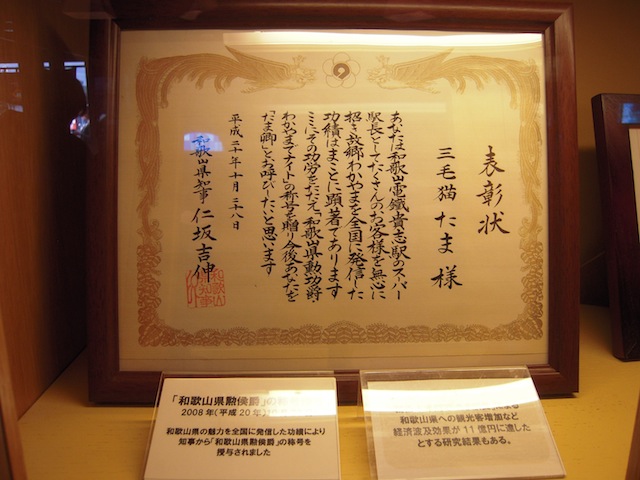 表彰状
三毛猫 たま 様
あなたは和歌山電鐵貴志駅のスーパー
駅長としてたくさんのお客様を無心に
招き故郷わかやまを全国に発信した
功績はまことに顕著であります
ここにその功労をたたえ「和歌山県勲功爵・
わかやまでナイト」の称号を贈り今後あなたを
「たま卿」とお呼びしたいと思います
平成二十年十月二十八日
和歌山県知事 仁坂吉伸
「和歌山県勲侯爵」の
2008年(平成20年)
和歌山県の魅力を全国に発信した功績により
知事から「和歌山県勲侯爵」の称号を
授与されました
和歌山県への観光客増加など
経済波及効果が11億円に達した
とする研究結果もある。